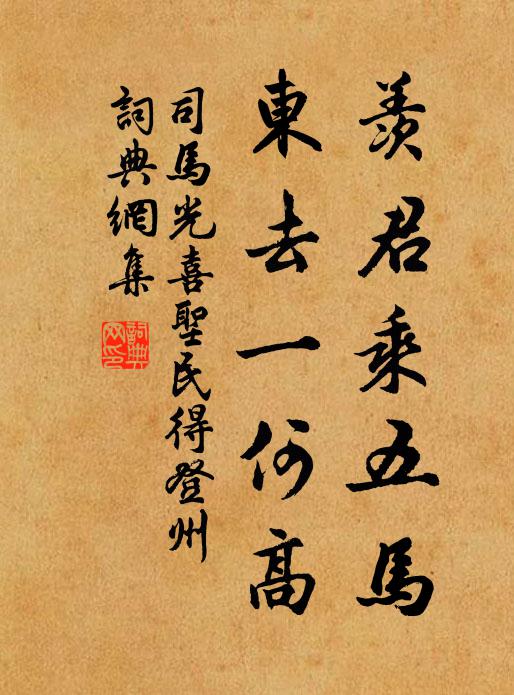 羨君乘五馬
東去一何高
司馬光喜聖民得登州
詞典網集
詞典网印